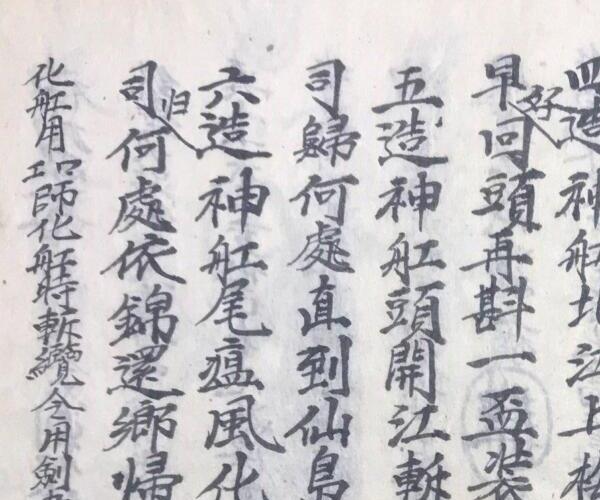 四造神舡北江上
早好回頭再斟一盃装
五造神舡頭開江斬
司歸何處直到仙島
六造神舡尾瘟風化
司归何處依錦還鄉歸
化舡用 口師化舡時斬纜令用劍